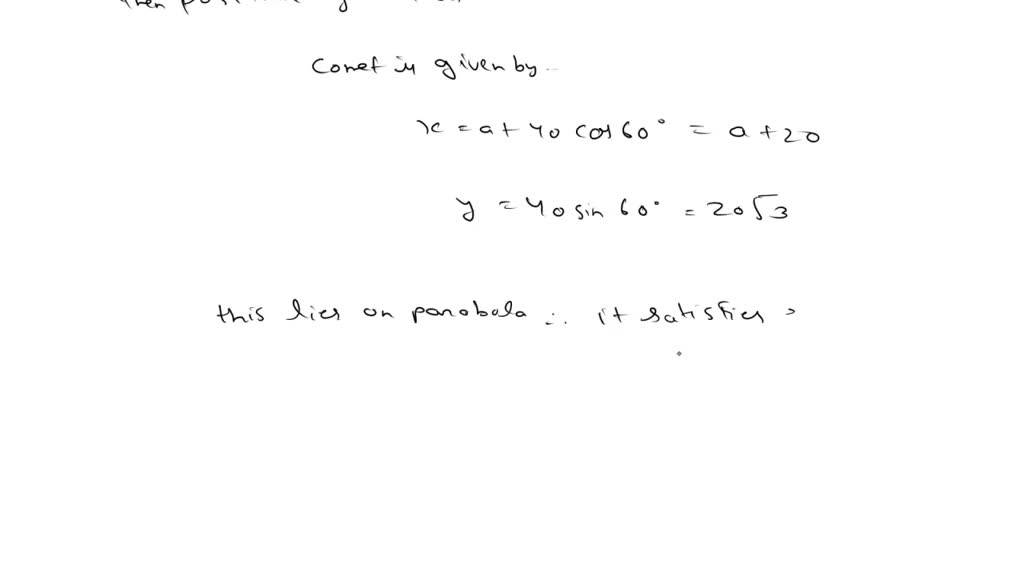 then
Comet is given by..
x = a + 40 cos 60° = a + 20
y = 40 sin 60° = 20√3
this lies on parabola ∴ it satisfies >